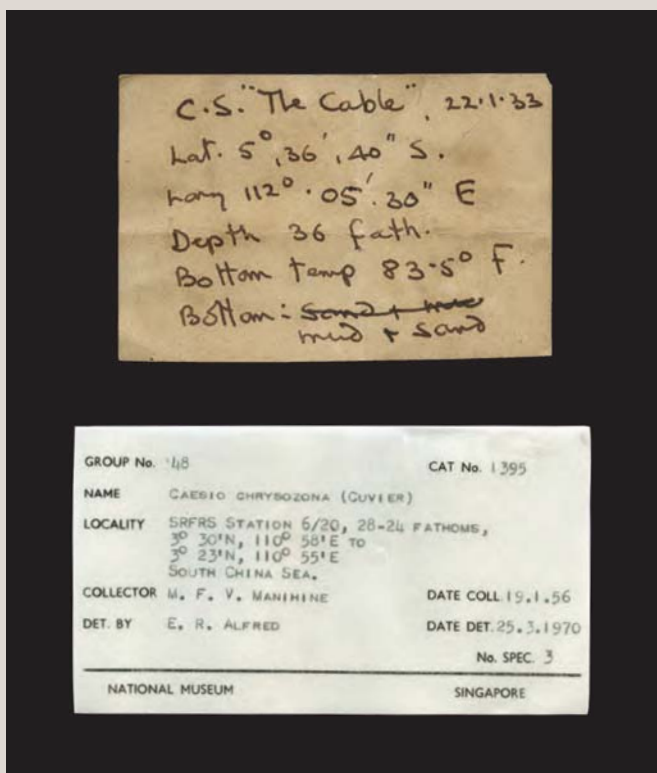 C.S. "The Cable", 22.1.33
Lat. 5°, 36', 40" S.
Long 112° . 05'. 30" E
Depth 36 fath.
Bottom temp 83.5° F.
Bottom: sand + muc
mud + sand
GROUP No. 48 CAT No. 1395
NAME CAESIO CHRYSOZONA (CUVIER)
LOCALITY SRFRS STATION 6/20, 28-24 FATHOMS,
3° 30'N, 110° 58'E TO
3° 23'N, 110° 55'E
SOUTH CHINA SEA.
COLLECTOR M. F. V. MANIHINE DATE COLL. 19.1.56
DET. BY E. R. ALFRED DATE DET. 25.3.1970
No. SPEC. 3
NATIONAL MUSEUM SINGAPORE